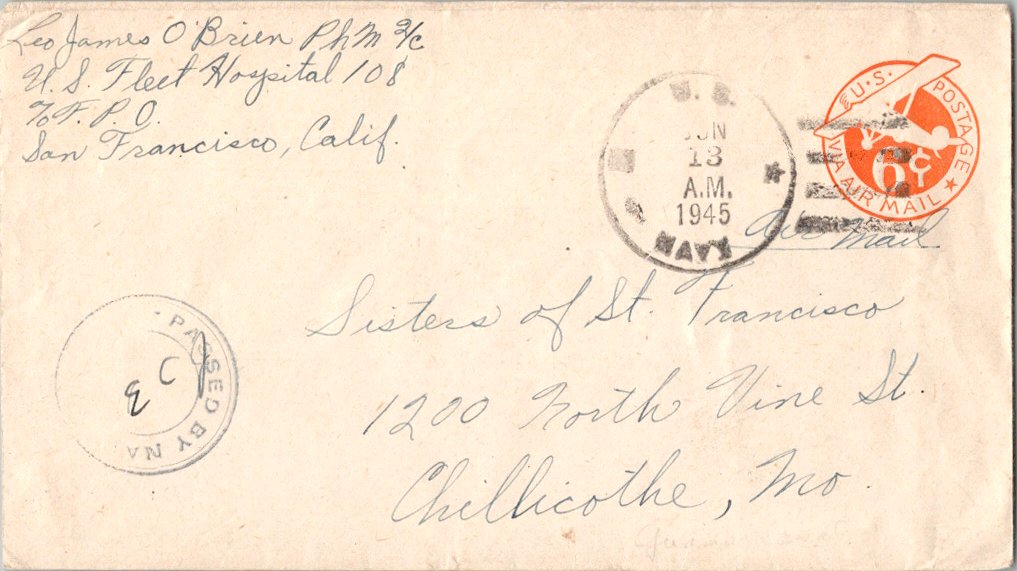 Leo James O'Brien PhM 2/c
U.S. Fleet Hospital 108
℅ F.P.O.
San Francisco, Calif.
U.S.
JUN
13
A.M.
1945
NAVY
U.S. POSTAGE
6¢
VIA AIR MAIL
Air Mail
Sisters of St. Francisco
1200 North Vine St.
Chillicothe, Mo.
PASSED BY NA